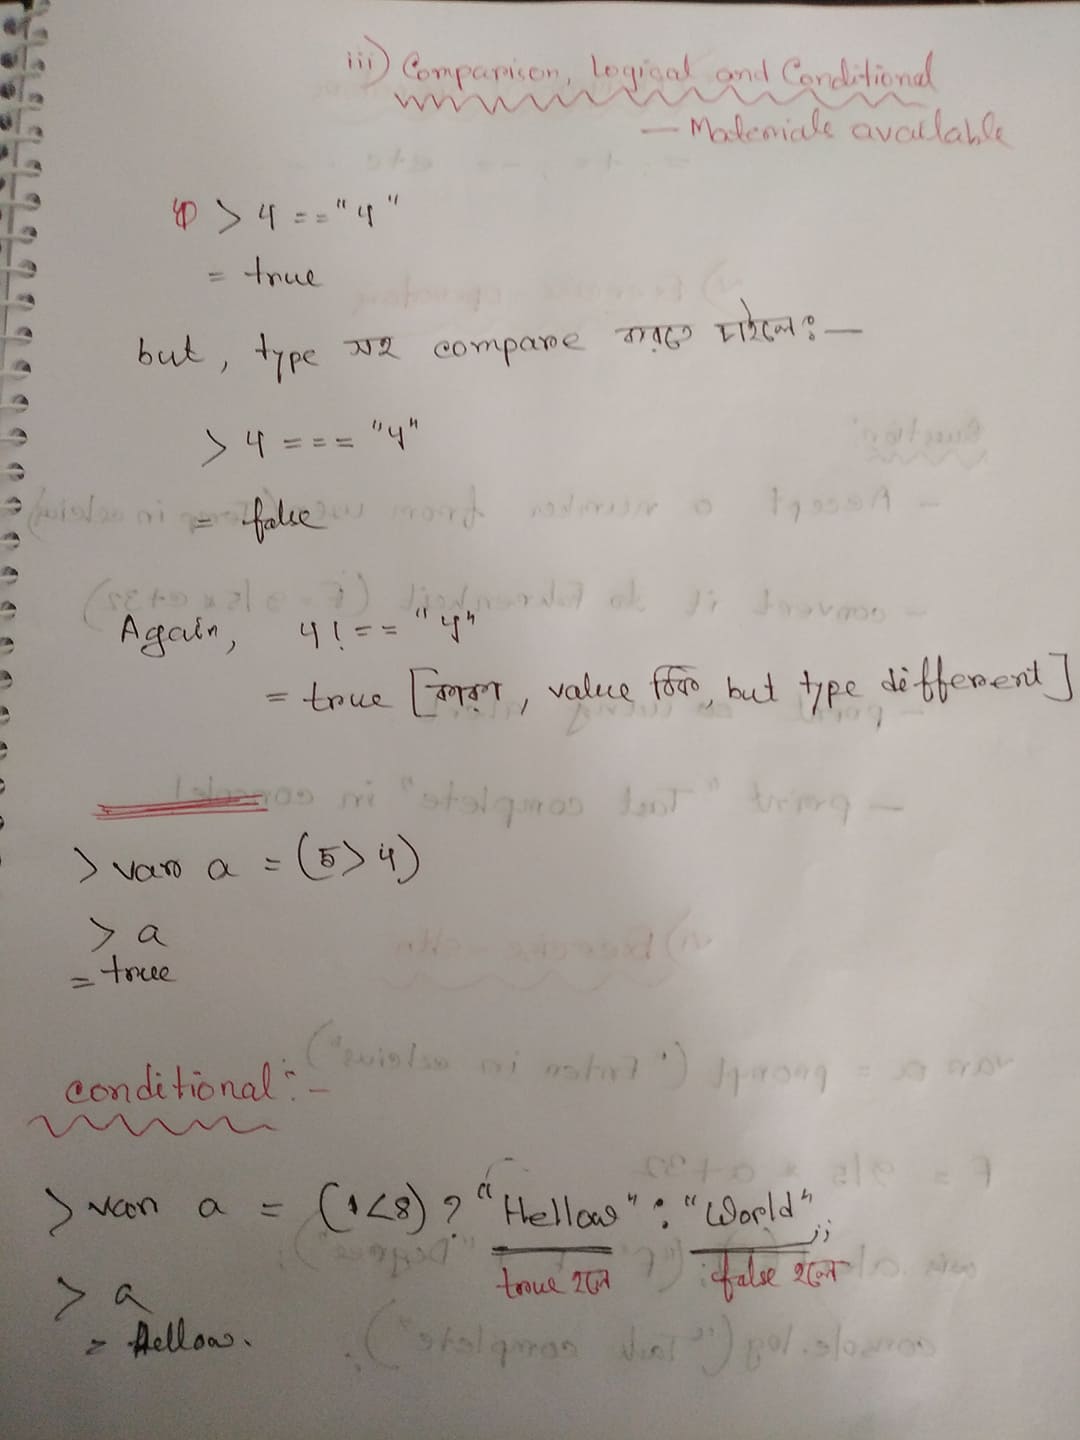 iii) Comparison, Logical and Conditional
— Materials available
> 4 == "4"
= true
but, type সহ compare করতে চাইলে :—
> 4 === "4"
= false
Again, 4 !== "4"
= true [কারণ, value ঠিক, but type different]
> var a = (5 > 4)
> a
= true
conditional :-
> var a = (1<8) ? "Hellow" : "World";
true হলে false হলে
> a
= Hellow.